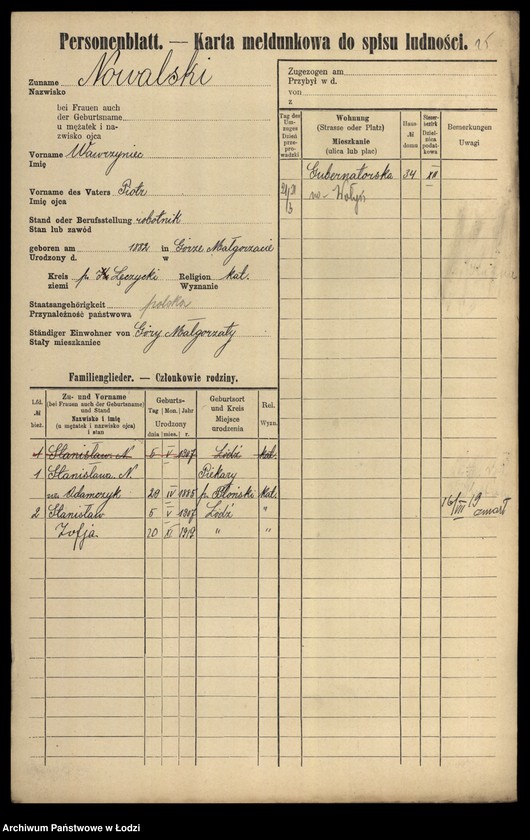 Personenblatt. — Karta meldunkowa do spisu ludności. 25
Zuname Nowalski
Nazwisko
bei Frauen auch
der Geburtsname
u mężatek i na-
zwisko ojca
Vorname Wawrzyniec
Imię
Vorname des Vaters Piotr
Imię ojca
Stand oder Berufsstellung robotnik
Stan lub zawód
geboren am 1882 in Górze Małgorzacie
Urodzony d. w
Kreis p. Łęczycki Religion kat.
ziemi Wyznanie
Staatsangehörigkeit polska
Przynależność państwowa
Ständiger Einwohner von Góry Małgorzaty
Stały mieszkaniec
Zugezogen am
Przybył w d.
von
z
Tag des Um-zuges
Dzień prze-prowadzki
Wohnung
(Strasse oder Platz)
Mieszkanie
(ulica lub plac)
Haus-
№
domu
Steuer-
bezirk
Dziel-
nica
podat-
kowa
Bemerkungen
Uwagi
Gubernatorska 34 XII
24/3 21 na - Wołyń
Familienglieder. — Członkowie rodziny.
Lfd.
№
bież.
Zu- und Vorname
(bei Frauen auch der Geburtsname)
und Stand
Nazwisko i imię
(u mężatek i nazwisko ojca)
i stan
Geburts-
Tag Mon. Jahr
Urodzony
dnia mies. r.
Geburtsort
und Kreis
Miejsce
urodzenia
Rel.
Wyzn.
1 Stanisław N. 5 V 1907 Łódź kat.
1 Stanisława N. Piekary
na Adamczyk 29 IV 1885 p. Płoński kat.
2 Stanisław 5 V 1907 Łódź " 16/VIII 19 zmarł
Zofja 20 XI 1919 " "
Archiwum Państwowe w Łodzi